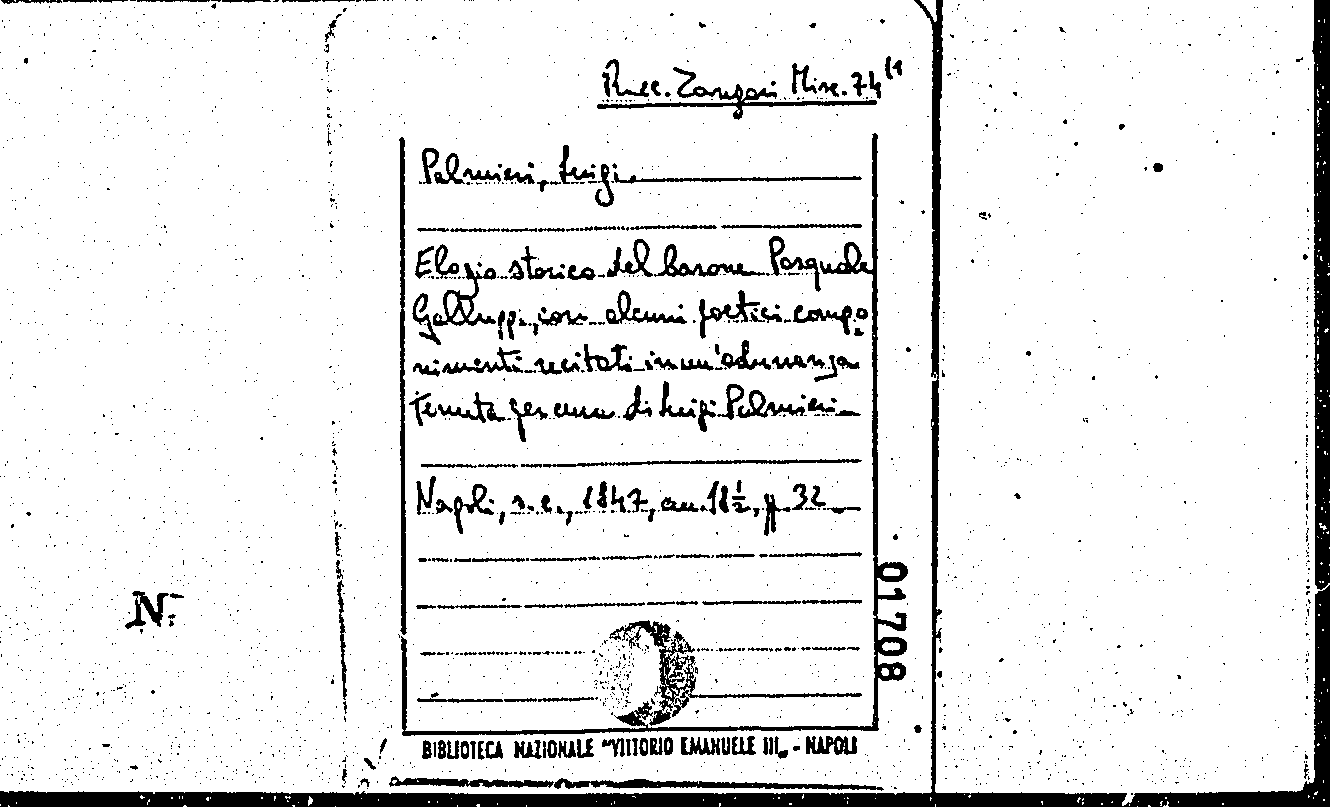 Racc. Zangari Misc. 74 (1
Palmieri, Luigi.
Elogio storico del barone Pasquale
Galluppi, con alcuni poetici compo-
nimenti recitati in un'adunanza
tenuta per cura di Luigi Palmieri
Napoli, s. e., 1847, cm. 18½, p. 32
01708
N.
BIBLIOTECA NAZIONALE "VITTORIO EMANUELE III„ - NAPOLI